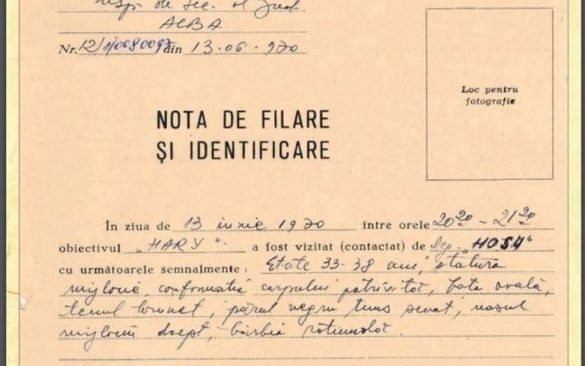 Insp. de Sec. al Jud.
ALBA
Nr. 12/1/0068009 din 13-06-970
Loc pentru
fotografie
NOTA DE FILARE
ȘI IDENTIFICARE
În ziua de 13 iunie 1970 între orele 20²⁰ - 21²⁰
obiectivul „HARY". a fost vizitat (contactat) de leg. „HOSU"
cu următoarele semnalmente : Etate 33-38 ani, statură
mijlocie conformația corpului potrivită, fața ovală,
tenul brunet, părul negru tuns scurt, nasul
mijlociu drept, bărbia rotundă.